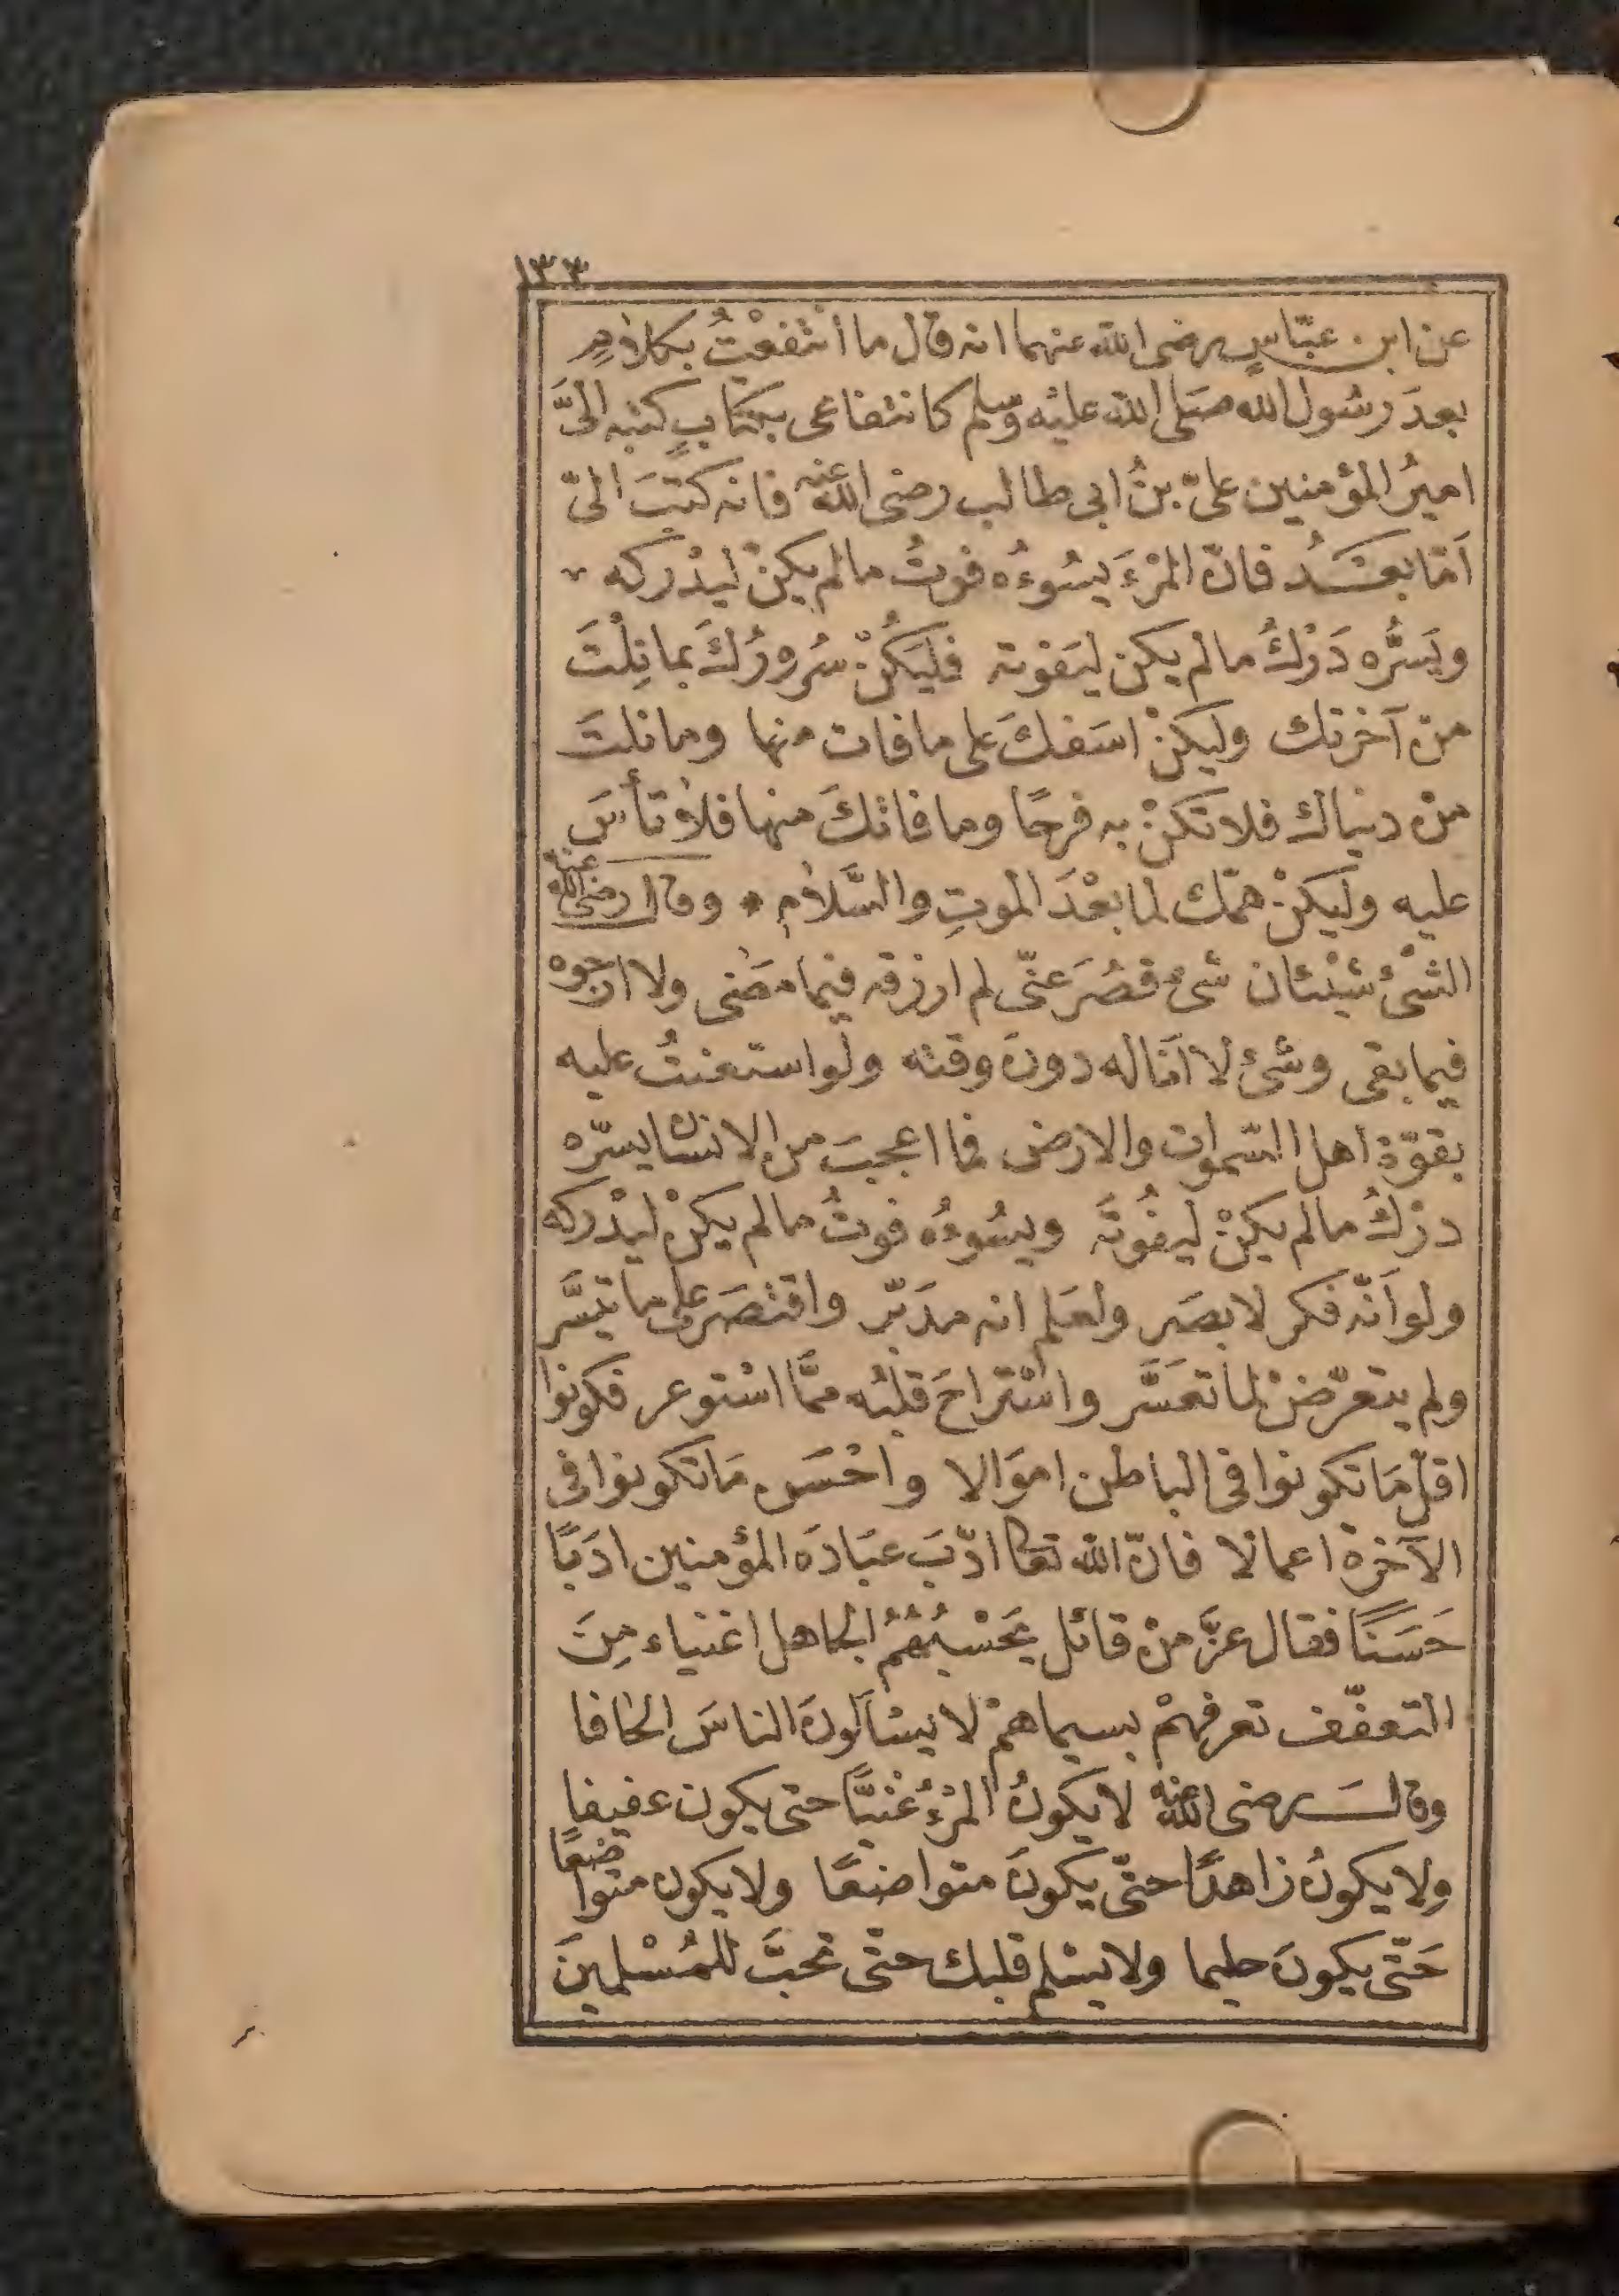 ١٣٣
عن ابن عبّاسٍ رضى الله عنهما انه قال ما انتفعْتُ بكلامٍ
بعدَ رسُول الله صَلى الله عليْه وسلم كانتفاعى بكتابٍ كتبه الىَّ
اميرُ المؤمنين علىّ بنُ ابى طالب رضى الله عنه فانه كتبَ الىّ
اَمّا بعْدُ فانّ المرْءَ يسُوءُه فوتُ ما لم يكنْ ليدْركه
ويَسُرُّه دَرْكُ ما لم يكن ليَفوته فليَكُنْ سُرورُكَ بما نِلْتَ
منْ آخرتك وليكنْ اسَفكَ على ما فات منها وما نلتَ
منْ دنياك فلا تكنْ به فرحًا وما فاتكَ منها فلا تأسَ
عليه وليكنْ همّك لما بعْدَ الموتِ والسَّلام وقال رضى الله عنه
الشىْئ شيْئان شىْءٌ قصُرَ عنّى لم ارزقه فيما مضى ولا ارجوه
فيما بقى وشىْئ لا اَناله دونَ وقته ولو استعنتُ عليه
بقوّة اهل السّموات والارض فما اعجبَ من الانسان يسرّه
درْكُ ما لم يكنْ ليفُوتَه ويسُوءُه فوتُ ما لم يكنْ ليدْركه
ولو اَنّه فكر لابصَر ولعَلم انه مدَبّر واقتصَر على ما تيسَّر
ولم يتعرّضْ لما تعسَّر واسْتراحَ قلبُه ممَّا اسْتوعر فكونوا
اقلّ مَا تكونوا فى الباطن اموَالا واحْسَن مَا تكونوا فى
الآخرة اعمالا فانّ الله تعا ادّبَ عبَادَه المؤمنين ادَبًا
حَسَنًا فقال عزَّ منْ قائل يَحْسبُهُمُ الجاهل اغنياء مِنَ
التعفّف تعرفهمْ بسيماهمْ لا يسْأَلونَ الناسَ الحافا
وقال رضى الله عنه لا يكونُ المرْءُ غنيًّا حتى يكون عفيفا
ولا يكونُ زاهدًا حتّى يكونَ متواضعًا ولا يكون متواضعًا
حَتّى يكونَ حليما ولا يسْلم قلبك حتّى تحبَّ للمُسْلمينَ